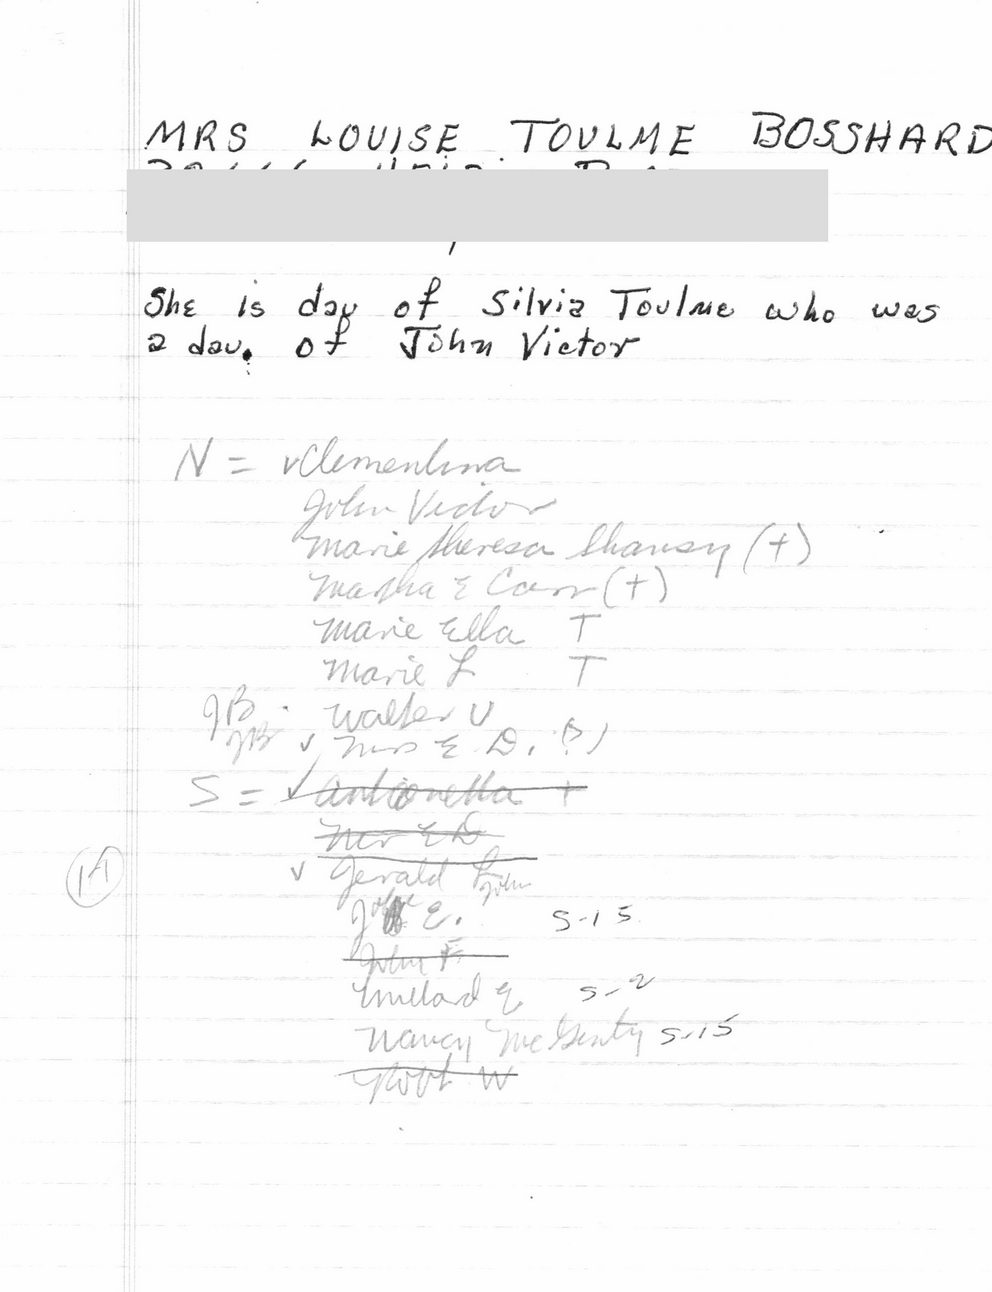 MRS LOUISE TOULME BOSSHARD
She is dau of Silvia Toulme who was
a dau. of John Victor
N = ✓Clementina
John Victor
Marie Theresa Shansey (+)
Martha E Carr (+)
Marie Ella T
Marie L T
JB. Walter V
JB ✓ Mrs E D. (?)
S = ✓ Antionetta +
Mrs E D
✓ Gerald John
14
E. S-15
John F
Millard E S-2
Nancy McGinty S-15
Robt W